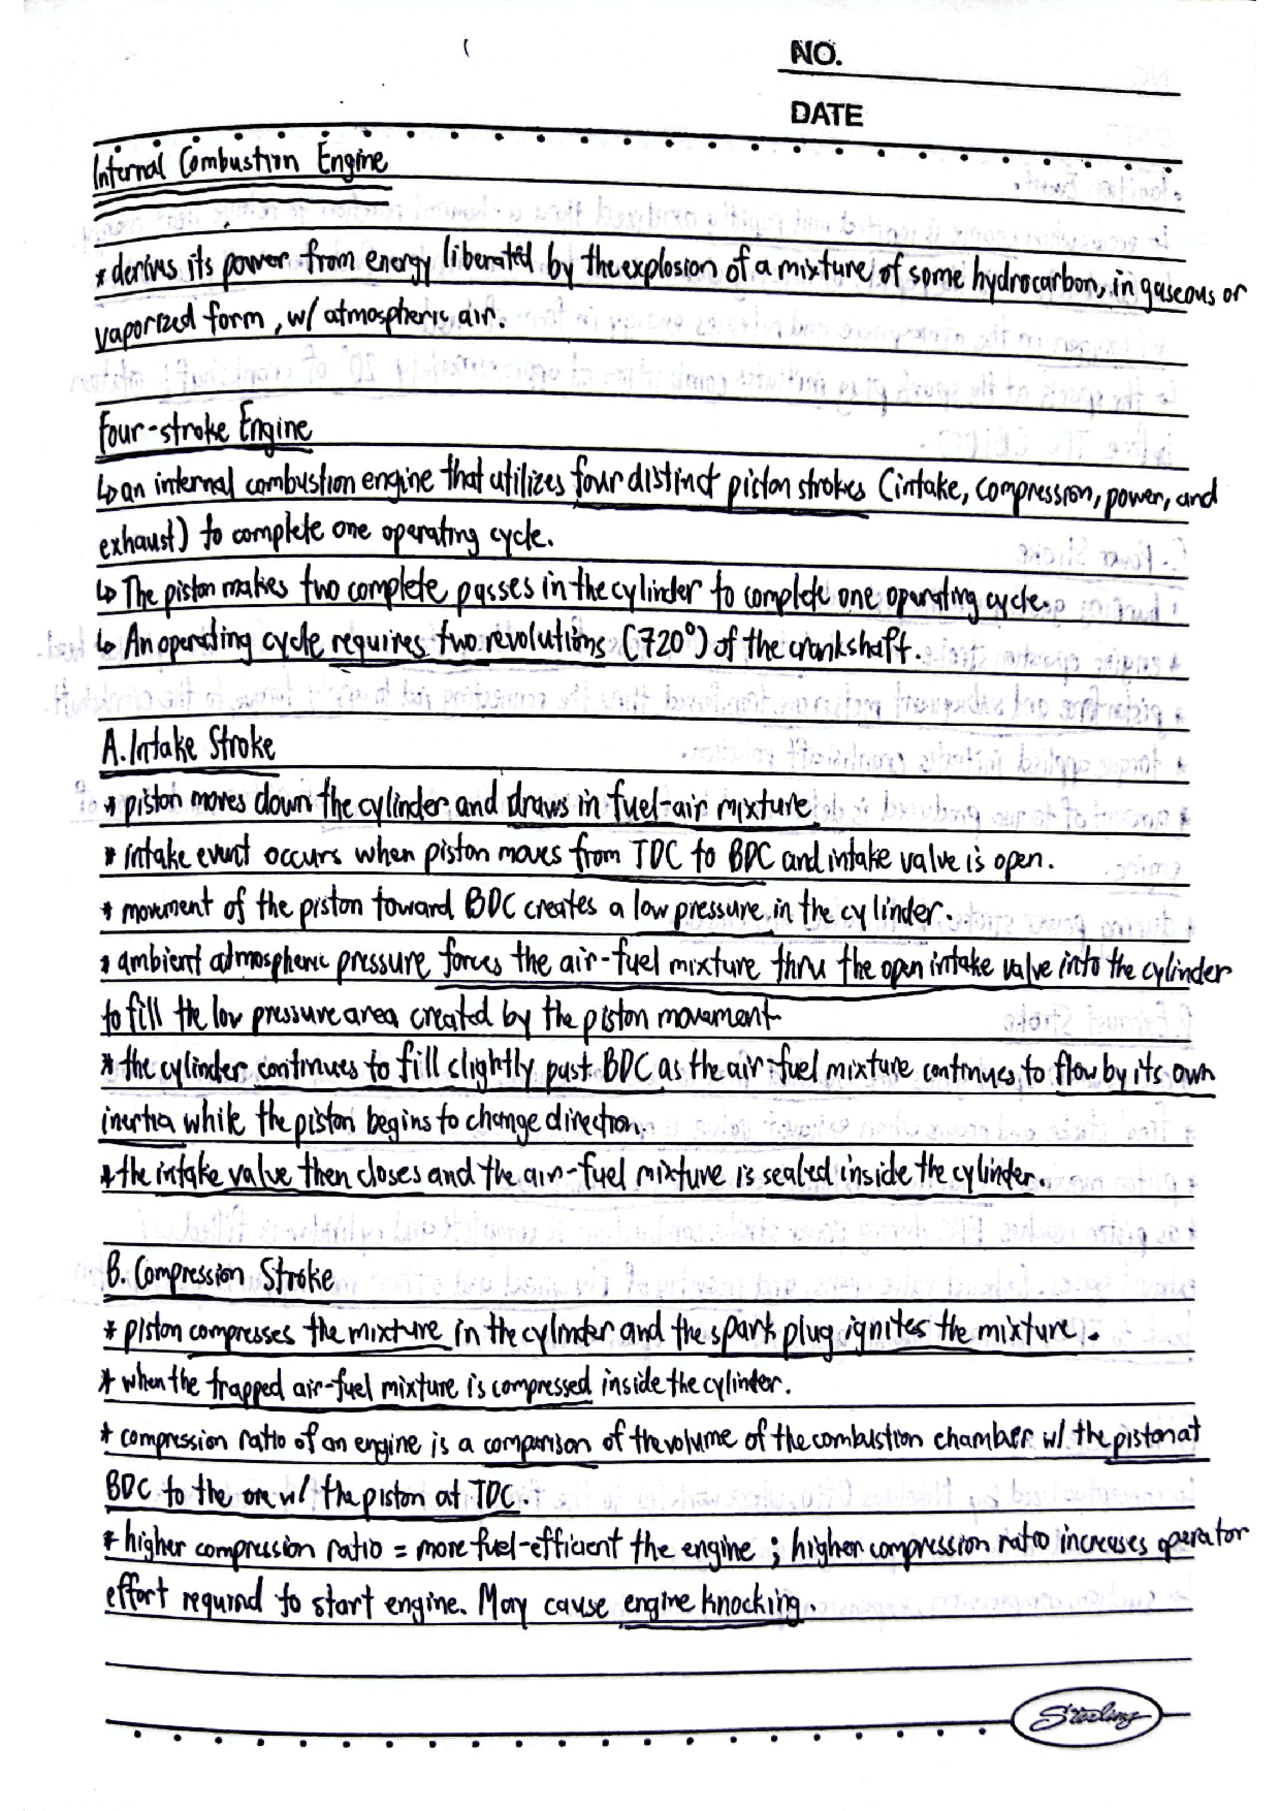 NO.
DATE
Internal Combustion Engine
* derives its power from energy liberated by the explosion of a mixture of some hydrocarbon, in gaseous or
vaporized form, w/ atmospheric air.
Four-stroke Engine
↳ an internal combustion engine that utilizes four distinct piston strokes (intake, compression, power, and
exhaust) to complete one operating cycle.
↳ The piston makes two complete passes in the cylinder to complete one operating cycle.
↳ An operating cycle requires two revolutions (720°) of the crankshaft.
A. Intake Stroke
* piston moves down the cylinder and draws in fuel-air mixture
* intake event occurs when piston moves from TDC to BDC and intake valve is open.
* movement of the piston toward BDC creates a low pressure in the cylinder.
* ambient atmospheric pressure forces the air-fuel mixture thru the open intake valve into the cylinder
to fill the low pressure area created by the piston movement
* the cylinder continues to fill slightly past BDC as the air-fuel mixture continues to flow by its own
inertia while the piston begins to change direction.
* the intake valve then closes and the air-fuel mixture is sealed inside the cylinder.
B. Compression Stroke
* piston compresses the mixture in the cylinder and the spark plug ignites the mixture.
* when the trapped air-fuel mixture is compressed inside the cylinder.
* compression ratio of an engine is a comparison of the volume of the combustion chamber w/ the piston at
BDC to the one w/ the piston at TDC.
* higher compression ratio = more fuel-efficient the engine ; higher compression ratio increases operator
effort required to start engine. May cause engine knocking.
Sterling